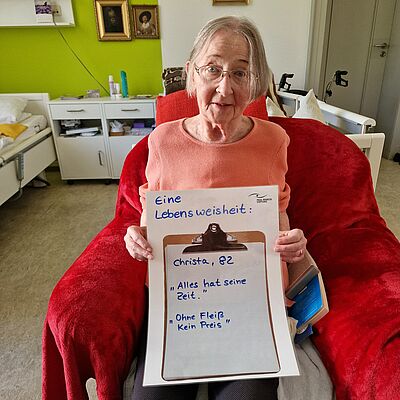 Eine
Lebensweisheit:
Christa, 82
„Alles hat seine
Zeit."
„Ohne Fleiß
Kein Preis"